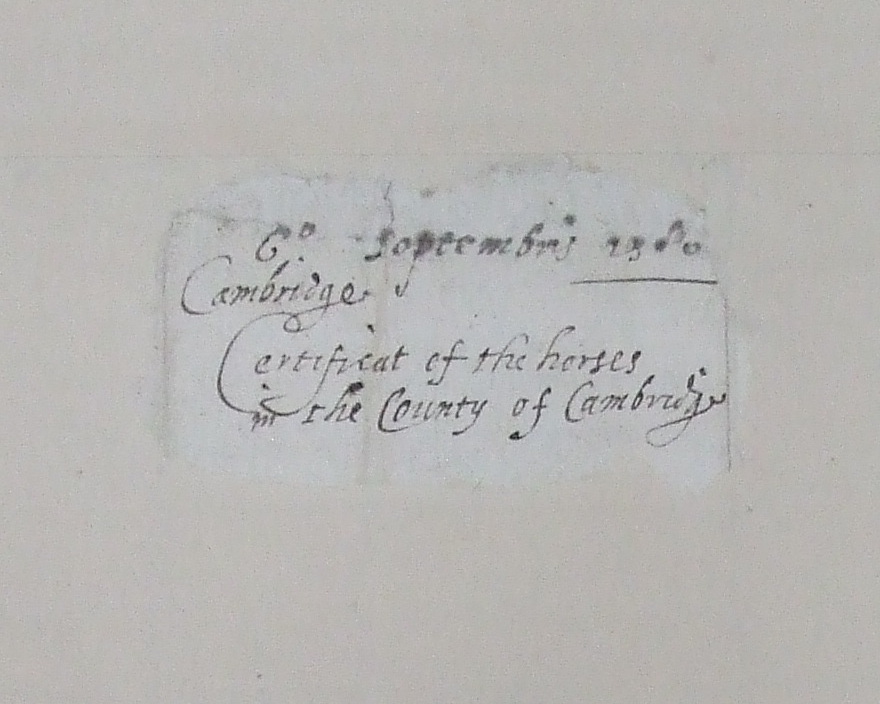 6º Septembris 1580
Cambridge.
Certificat of the horses
in the County of Cambridge